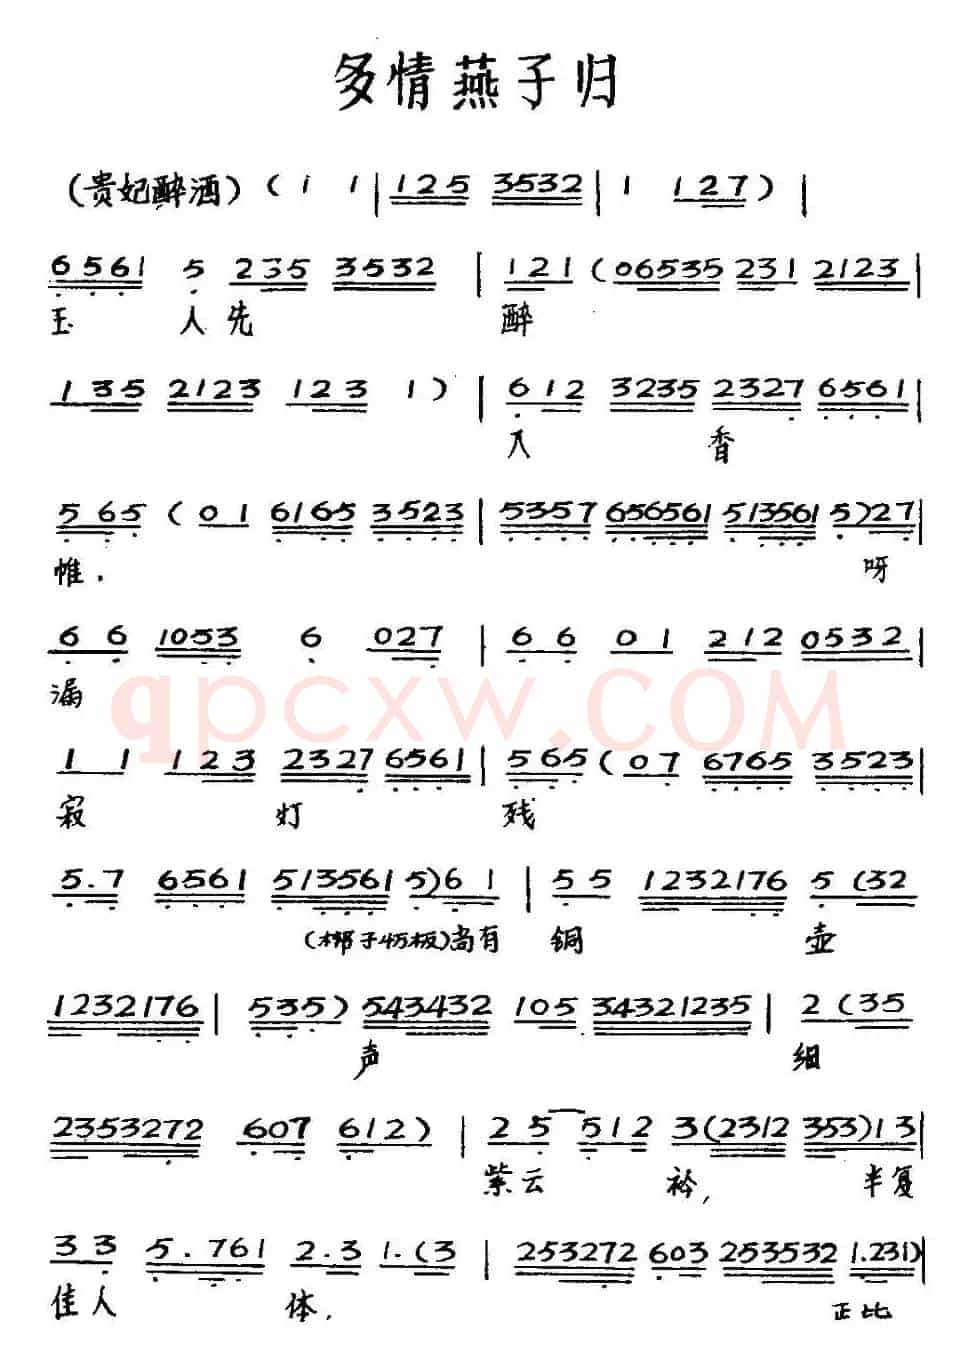 多情燕子归
(贵妃醉酒) ( 1 1 | 125 3532 | 1 127 ) |
6561 5 235 3532 | 121 (06535 231 2123 |
玉 人先 醉
135 2123 123 1 ) | 612 3235 2327 6561
入 香
565 ( 01 6165 3523 | 5357 656561 513561 5)27 |
惟. 呀
66 1053 6 027 | 66 01 212 0532 |
漏
qpcxw.COM
11 123 2327 6561 | 565 (07 6765 3523 |
寂 灯 残
5.7 6561 513561 5)61 | 55 1232176 5 (32
(梆子慢板)尚有 铜 壶
1232176 | 535 ) 543432 105 34321235 | 2 (35
声 细
2353272 607 612 ) | 25 512 3(2312 353)13 |
紫云 衿, 半复
33 5.761 2.3 1.(3 | 253272 603 253532 1.231) |
佳人 体, 正比